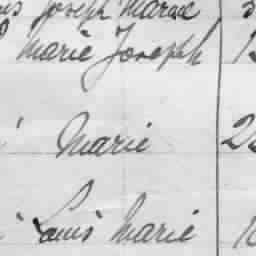 Joseph Marie
Marie Joseph
Marie
Louis Marie